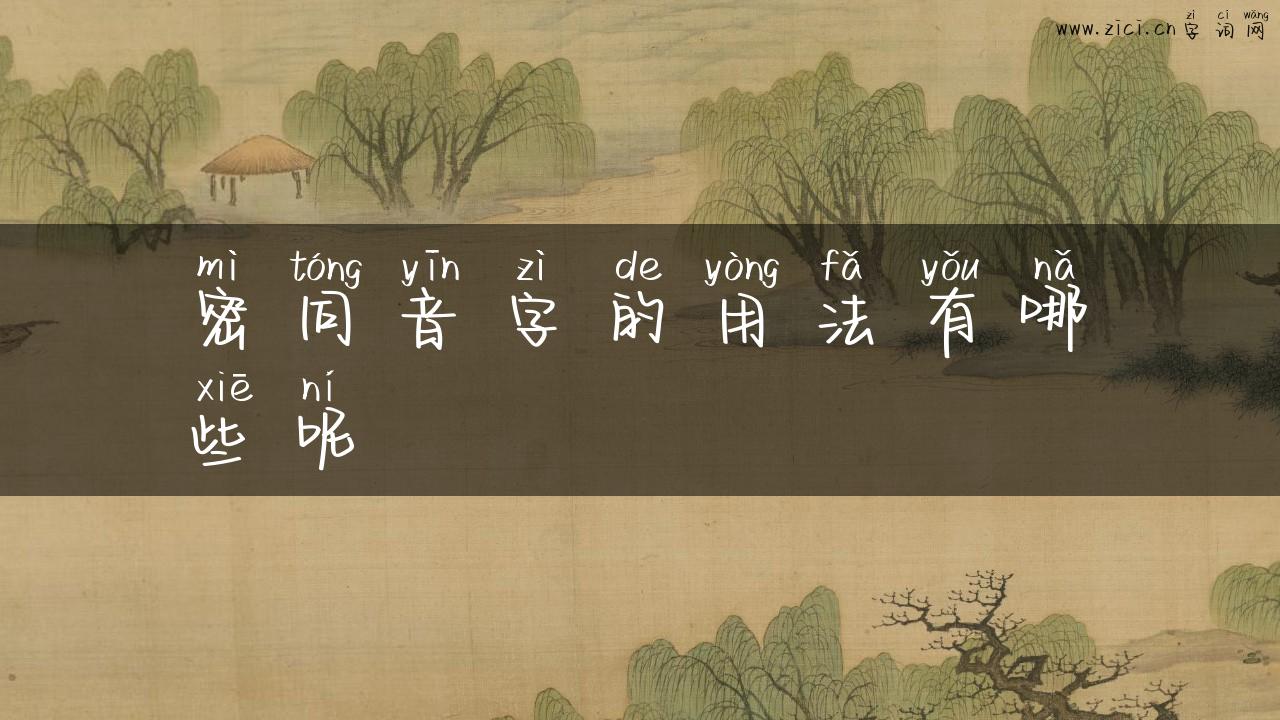 zì cí wǎng
www.zici.cn 字词网
mì tóng yīn zì de yòng fǎ yǒu nǎ
密同音字的用法有哪
xiē ní
些呢